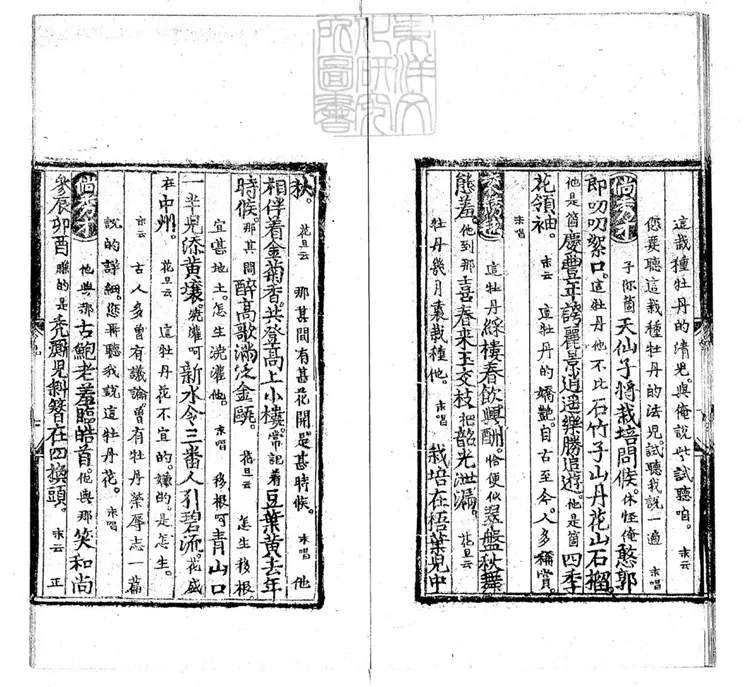 東洋文
化研究
所圖書
這栽種牡丹的清况與俺說些試聽咱。末云
您要聽這栽種牡丹的法兒試聽我說一遍 末唱
倘秀才 子你箇天仙子將栽培問候。休怪俺憨郭
郎叨叨絮口。這牡丹他不比石竹子山丹花山石榴。
他是箇慶豐年誇麗景逍遥樂勝追遊。他是箇四季
花領袖。末云 這牡丹的嬌艷。自古至今。人多稱賞。
末唱
滾繡毬 這牡丹綵樓春飲興酣。恰便似翠盤秋舞
態羞。他到那喜春来玉交枝。把韶光泄漏。花旦云
牡丹幾月裏栽種他。末唱 栽培在梧葉兒中
秋。花旦云 那其間有甚花開。是甚時候。末唱 他
相伴着金菊香。共登高上小樓。常記着豆葉黄去年
時候。那其間醉高歌滿泛金甌。花旦云 怎生移根。
宜甚地土。怎生澆灌他。末唱 移根呵青山口
一半兒添黄壤。澆灌呵新水令三番人引碧流。花盛
在中州。花旦云 這牡丹花不宜的。嫌的。是怎生。
末云 古人多曾有議論。曾有牡丹榮辱志一篇
說的詳細。您再聽我說這牡丹花。末唱
倘秀才 他與那古鮑老羞臨皓首。他與那笑和尚
參辰卯酉 的是禿廝兒斜簪在四換頭。末云 正